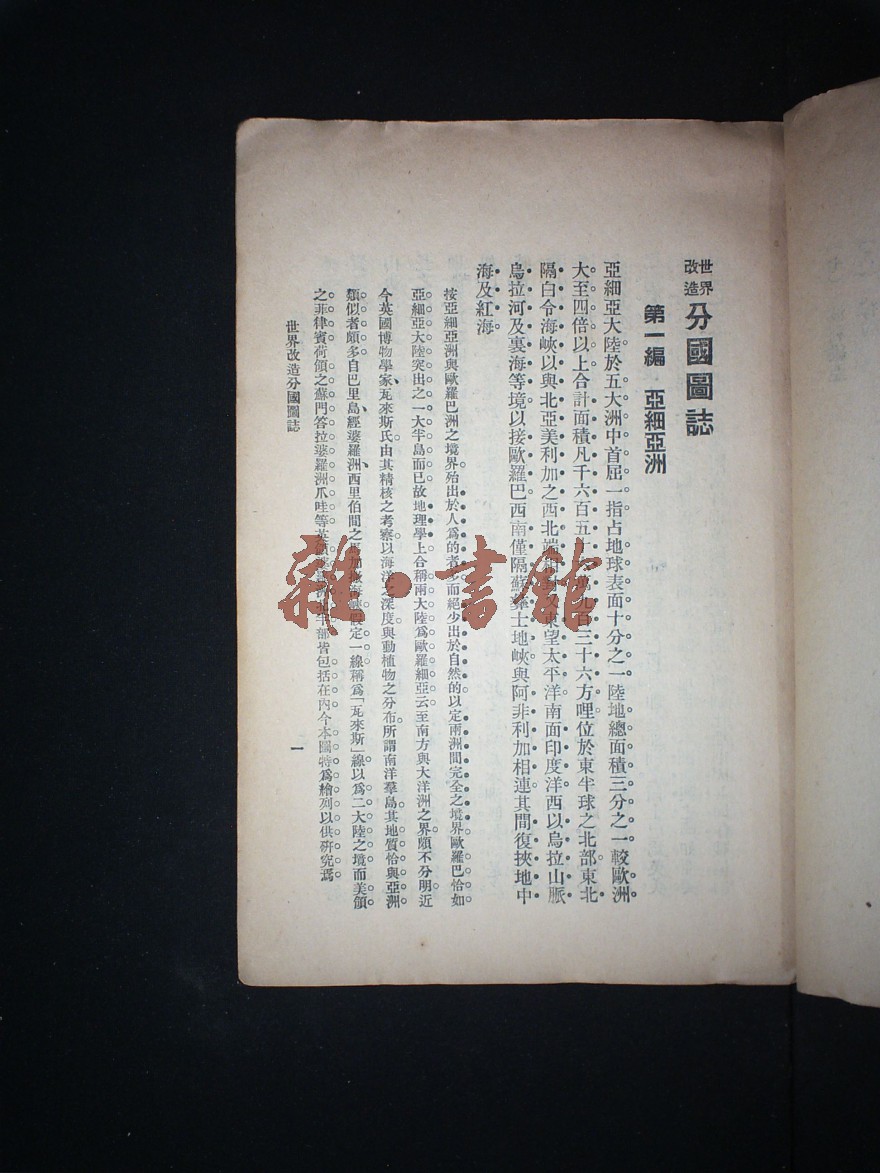 世界改造 分國圖誌
第一編　亞細亞洲
亞細亞大陸於五大洲中首屈一指占地球表面十分之一陸地總面積三分之一較歐洲
大至四倍以上合計面積凡千六百五十百三十六方哩位於東半球之北部東北
隔白令海峽以與北亞美利加之西北端東望太平洋南面印度洋西以烏拉山脈
烏拉河及裏海等境以接歐羅巴西南僅隔蘇彝士地峽與阿非利加相連其間復挾地中
海及紅海。
按亞細亞洲與歐羅巴洲之境界殆出於人爲的者多而絕少出於自然的以定兩洲間完全之境界歐羅巴恰如
亞細亞大陸突出之一大半島而已故地理學上合稱兩大陸爲歐羅細亞云至南方與大洋洲之界頗不分明近
今英國博物學家瓦來斯氏由其精核之考察以海洋之深度與動植物之分布所謂南洋羣島其地質恰與亞洲
類似者頗多自巴里島、經婆羅洲、西里伯間之馬加撒海峽假定一線稱爲「瓦來斯」線以爲二大陸之境而美領
之菲律賓荷領之蘇門答拉婆羅洲爪哇等英領半部皆包括在內今本圖特爲繪列以供研究焉
世界改造分國圖誌
一
雜·書館